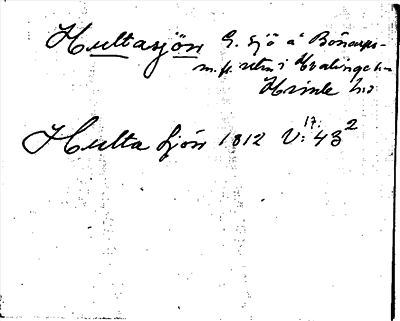 Hultasjön G. sjö å Bönarps-
m.fl. utm i Kvalinge sn
Hd
Hulta Sjön 1812 V:17:43²